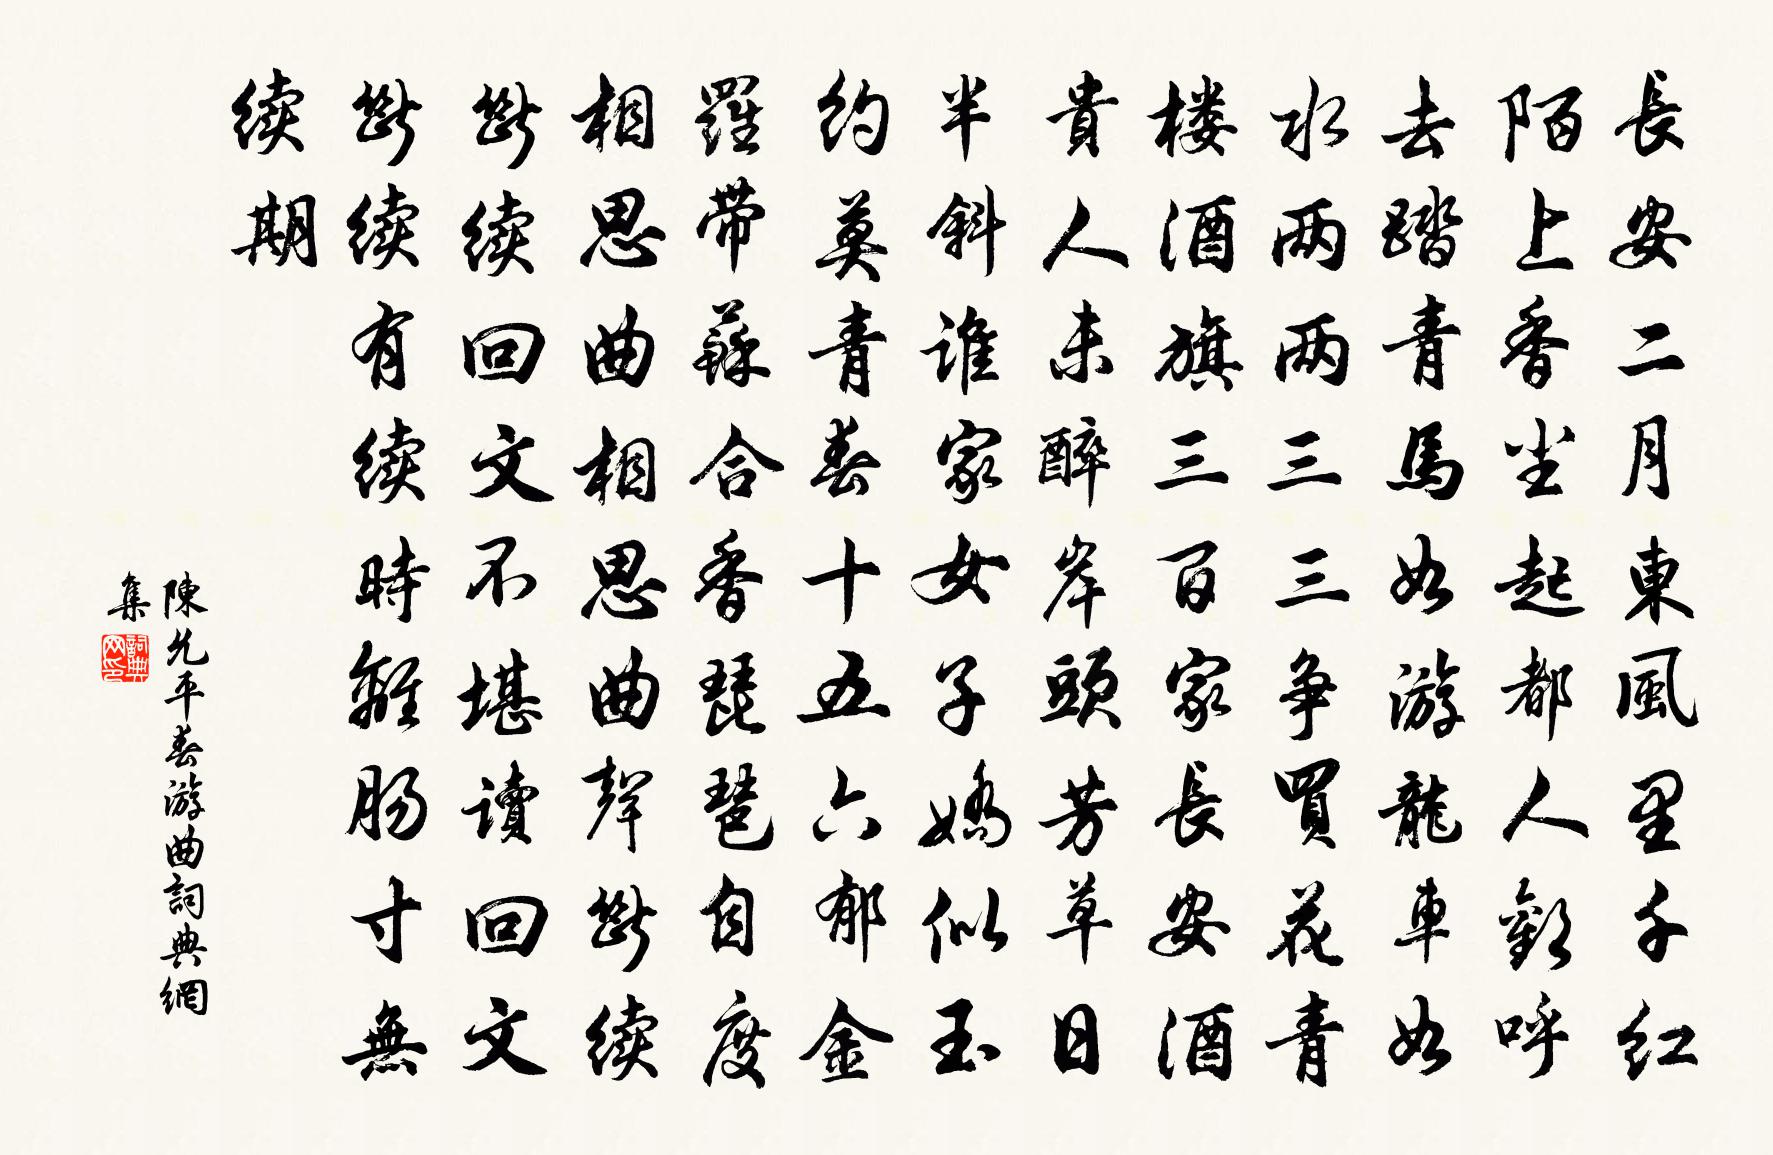 長安二月東風里千红
陌上香尘起都人歡呼
去踏青馬如游龍車如
水两两三三争買花青
楼酒旗三百家長安酒
貴人未醉岸頭芳草日
半斜谁家女子嬌似玉
约莫青春十五六郁金
羅带蘇合香琵琶自度
相思曲相思曲聲斷续
斷续回文不堪读回文
斷续有续時離肠寸無
续期
陳允平春游曲詞典網
集
詞典网印